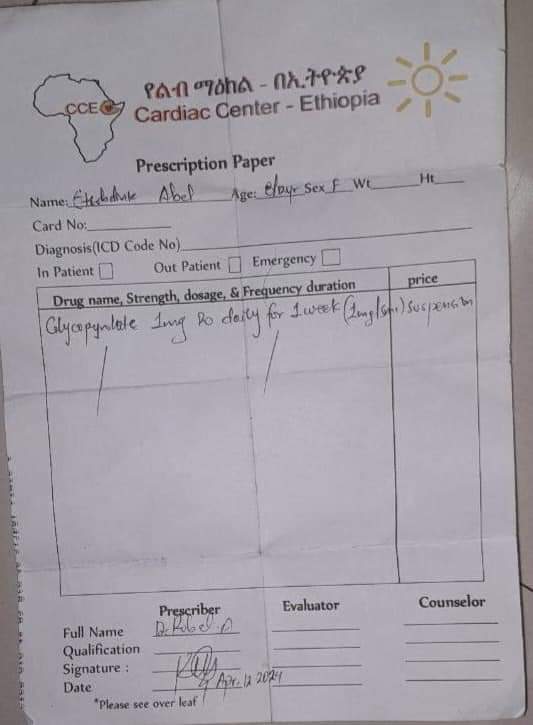 CCE
የልብ ማዕከል - በኢትዮጵያ
Cardiac Center - Ethiopia
Prescription Paper
Name: Abel Age: Sex F Wt Ht
Card No:
Diagnosis(ICD Code No)
In Patient Out Patient Emergency
Drug name, Strength, dosage, & Frequency duration price
1mg Po daily for 1 week (1mg/5ml) suspension
Prescriber Evaluator Counselor
Full Name Dr. Robel
Qualification
Signature :
Date Apr. 12 2024
*Please see over leaf